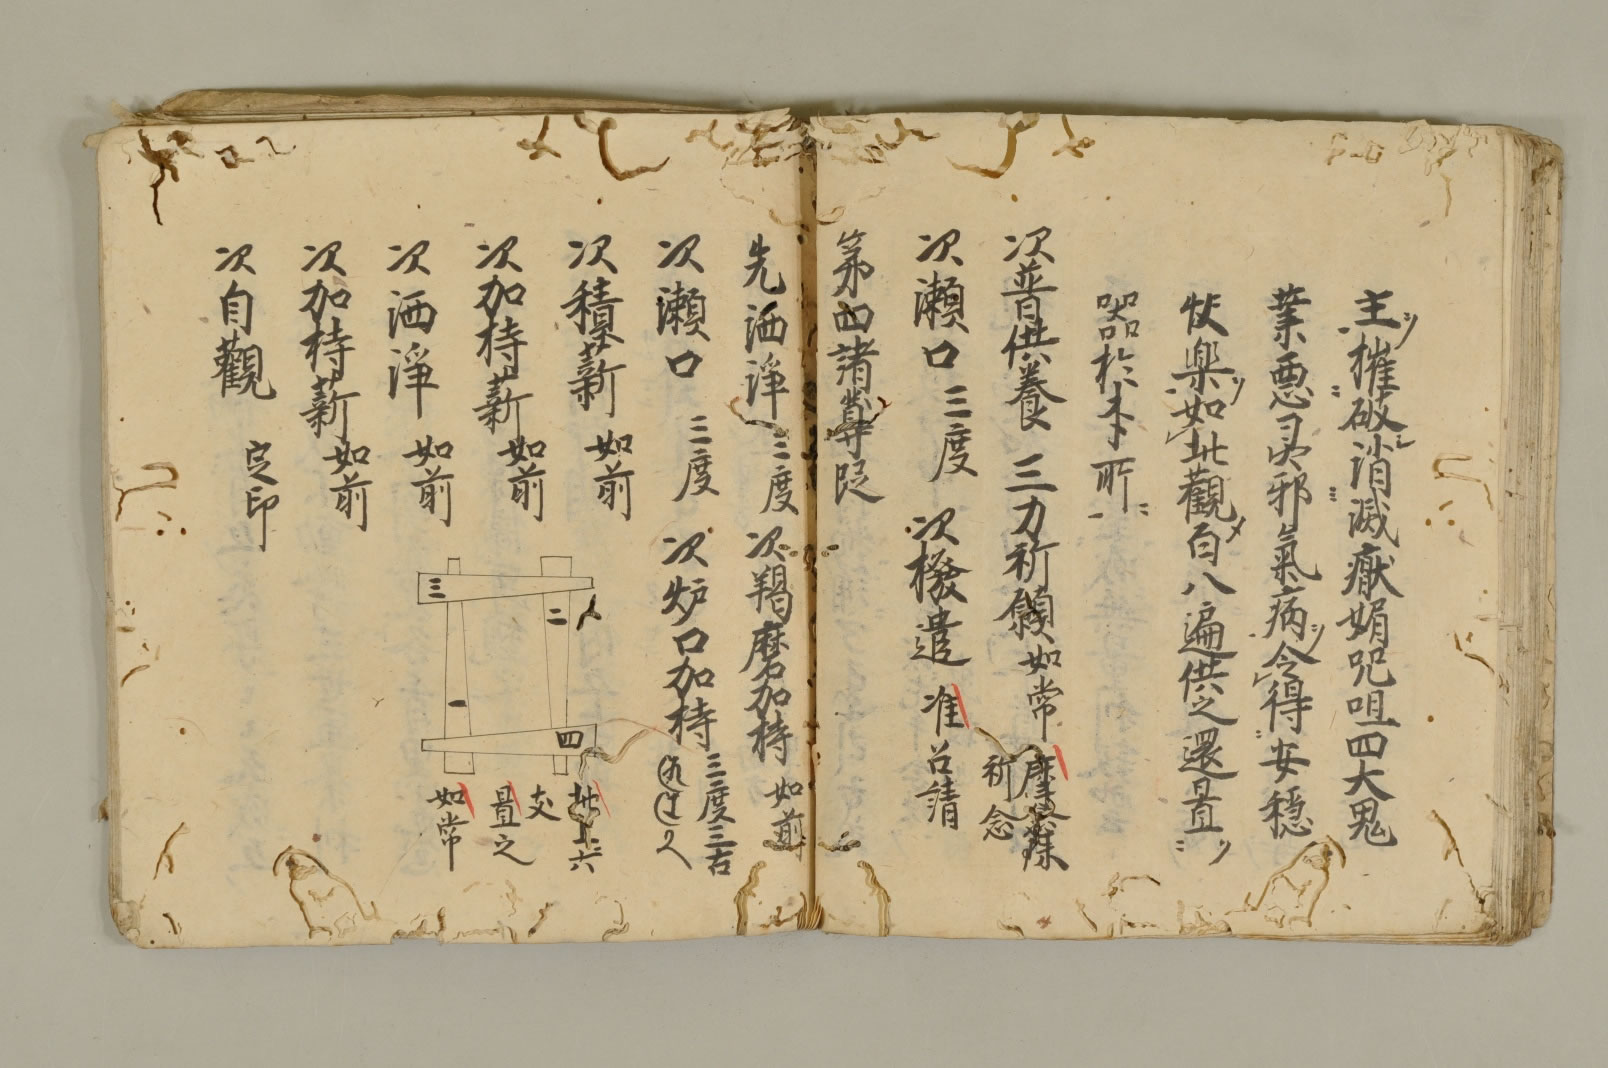 主摧破消滅厭媚呪咀四大鬼
業悪灵邪氣病令得安穏
快樂如此觀百八遍供之還置
器於本所
次普供養 三力祈願如常
祈念
次瀬口 三度 次撥遣 准召請
第四諸尊段
先洒淨 三度 次羯磨加持 如前
次瀬口 三度 次炉口加持 三度三古
次積薪 如前
次加持薪 如前
次洒淨 如前
次加持薪 如前
次自觀 定印
三
二
一
四
此上六
支
置之
如常